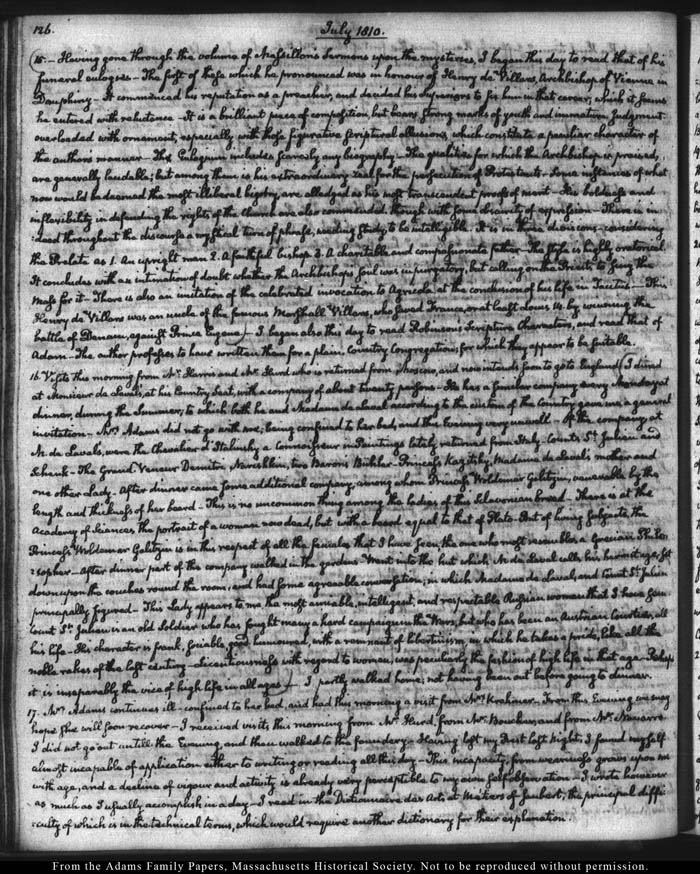 126.
July 1810.
15. – Having gone through the volume of Massillon's Sermons upon the mysteries, I began this day to read that of his
funeral eulogies – The first of these which he pronounced was in honour of Henry de Villars, Archbishop of Vienne in
Dauphiny – It commenced his reputation as a preacher, and decided his Superiors to fix him in that career, which it seems
he entered with reluctance – It is a brilliant piece of composition, but bears strong marks of youth and immature Judgment
overloaded with ornament, especially with those figurative scriptural allusions, which constitute a peculiar character of
the authors manner – This Eulogium includes scarcely any biography – The qualities for which the Archbishop is praised,
are generally laudable; but among them is his extraordinary zeal for the persecution of Protestants – Some instances of what
now would be deemed the most illiberal bigotry, are alledged as his most transcendent proofs of merit – His boldness and
inflexibility in defending the rights of the Church are also commended though with some obscurity of expression – There is in
deed throughout the discourse a mystical turn of phrase, needing study to be intelligible. It is in three divisions – considering
the Prelate as 1. An upright man 2. A faithful bishop 3. A charitable and compassionate father – The style is highly oratorical
It concludes with an intimation of doubt whether the Archbishops soul was in purgatory, but calling on the Priests to sing the
Mass for it – There is also an imitation of the celebrated invocation to Agricola at the conclusion of his life in Tacitus – This
Henry de Villars was an uncle of the famous Marshall Villars, who saved France, or at least Louis 14. by winning the
battle of Denain, against Prince Eugene) – I began also this day to read Robinsons Scripture Characters, and read that of
Adam – The author professes to have written them for a plain Country Congregation; for which they appear to be suitable.
16. Visits this morning from Mr Harris and Mr Hurd who is returned from Moscow, and now intends soon to go to England (I dined
at Monsieur de Laval's, at his Country Seat, with a company of about twenty persons – He has a similar company every Monday at
dinner, during the Summer; to which both he and Madame de Laval according to the custom of the Country gave me a general
invitation – Mrs Adams did not go with me; being confined to her bed, and this Evening very unwell – Of the company at
M. de Laval's, were the Chevalier d'Italinsky a Connoisseur in Paintings lately returned from Italy. Counts St. Julien and
Schenk – The Grand Veneur Demitri Narishkin, two Barons Bühler Princess Kazitsky, Madame de Laval's mother and
one other Lady – After dinner came some additional company, among whom Princess Woldemar Galitzin, venerable by the
length and thickness of her beard – This is no uncommon thing among the ladies of this Sclavonian breed – There is at the
Academy of Sciences the portrait of a woman now dead, but with a beard equal to that of Plato. But of living subjects the
Princess Woldemar Galitzin is in this respect of all the females that I have seen the one who most resembles a Grecian Philo
sopher – After dinner part of the company walked in the gardens Went into the hut which M. de Laval calls his hermitage, sat
down upon the couches round the room, and had some agreeable conversation; in which Madame de Laval, and Count St Julien
principally figured – This Lady appears to me the most amiable, intelligent, and respectable Russian woman that I have seen
Count St. Julien is an old Soldier who has fought many a hard campaign in the Wars, but who has been an Austrian Courtier, all
his life – His character is frank, sociable, good humoured, with a remnant of libertinism, in which he takes a pride, like all the
noble rakes of the last century – Licentiousness with regard to women, was peculiarly the fashion of high life in that age – Perhaps
it is inseparably the vice of high life in all ages) – I partly walked home; not having been out before going to dinner.
17. Mrs Adams continues ill – confined to her bed, and had this morning a visit from Mrs Krehmer – From this Evening we may
hope she will soon recover – I received visits this morning from Mr Hurd, from Mr Bouchers, and from Mr Navarro
I did not go out untill the Evening, and then walked to the foundery – Having lost my Rest last Night, I found myself
almost incapable of application either to writing or reading all this day – This incapacity, from weariness grows upon me
with age, and a decline of vigour and activity is already very perceptible to my own self observation – I wrote however
as much as I usually accomplish in a day – I read in the Dictionnaire des Arts et Métiers of Jaubert, the principal diffi-
culty of which is in the technical terms, which would require another dictionary for their explanation.
From the Adams Family Papers, Massachusetts Historical Society. Not to be reproduced without permission.